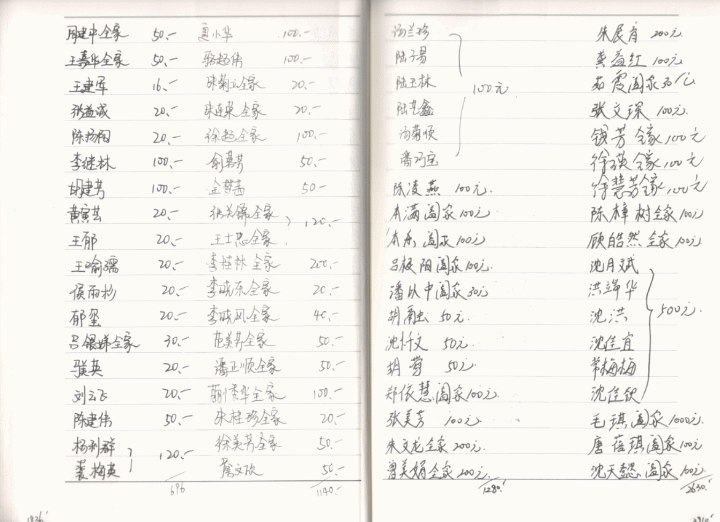 周建中全家 50.-
王嘉华全家 50.-
王建军 16.-
张益成 20.-
陈扬阳 20.-
李继林 100.-
胡建芳 100.-
黄 20.-
王郁 20.-
王喻霈 20.-
侯雨杉 20.-
郁玺 20.-
吕银娣全家 30.-
骏英 20.-
刘云飞 20.-
陈建伟 50.-
杨利群
裴梅英 120.-
696
1836.-
夏小华 100.-
骆超伟 100.-
朱菊 全家 20.-
朱连泉全家 20.-
徐超全家 100.-
俞慕芳 50.-
金 50.-
张美 全家
王士忠全家 120.-
李桂林全家 200.-
李晓东全家 20.-
李晓风全家 40.-
范美芳全家 50.-
潘正顺全家 50.-
蒯秀华全家 100.-
朱桂珍全家 20.-
徐美芳全家 50.-
詹文欣 50.-
1140.-
汤兰珍
陆子易
陆玉林
陆 鑫
汤
潘巧宝
100元
陈凌燕 100元.
本满阖家100元
本乐阖家100元
吕极阳阖家100元.
潘以中阖家30元
胡融 50元.
沈 文 50元.
胡莺 50元
郑依慧阖家100元
张美芳 100元.
朱文龙全家200元.
曾美娟全家200元.
1280.
朱展肖 200元.
黄益红 100元.
茹霞阖家30元
张文琛 100元.
钱芳全家100元
徐瑛全家100元
徐慧芳全家100元
陈梓树全家100元
顾皓然全家100元
沈月斌
洪泽华
沈洪
沈佳宜
常梅梅
沈佳钦
500元.
毛琪阖家1000元.
唐蓓琪阖家100元
沈天懿阖家100元.
2630.